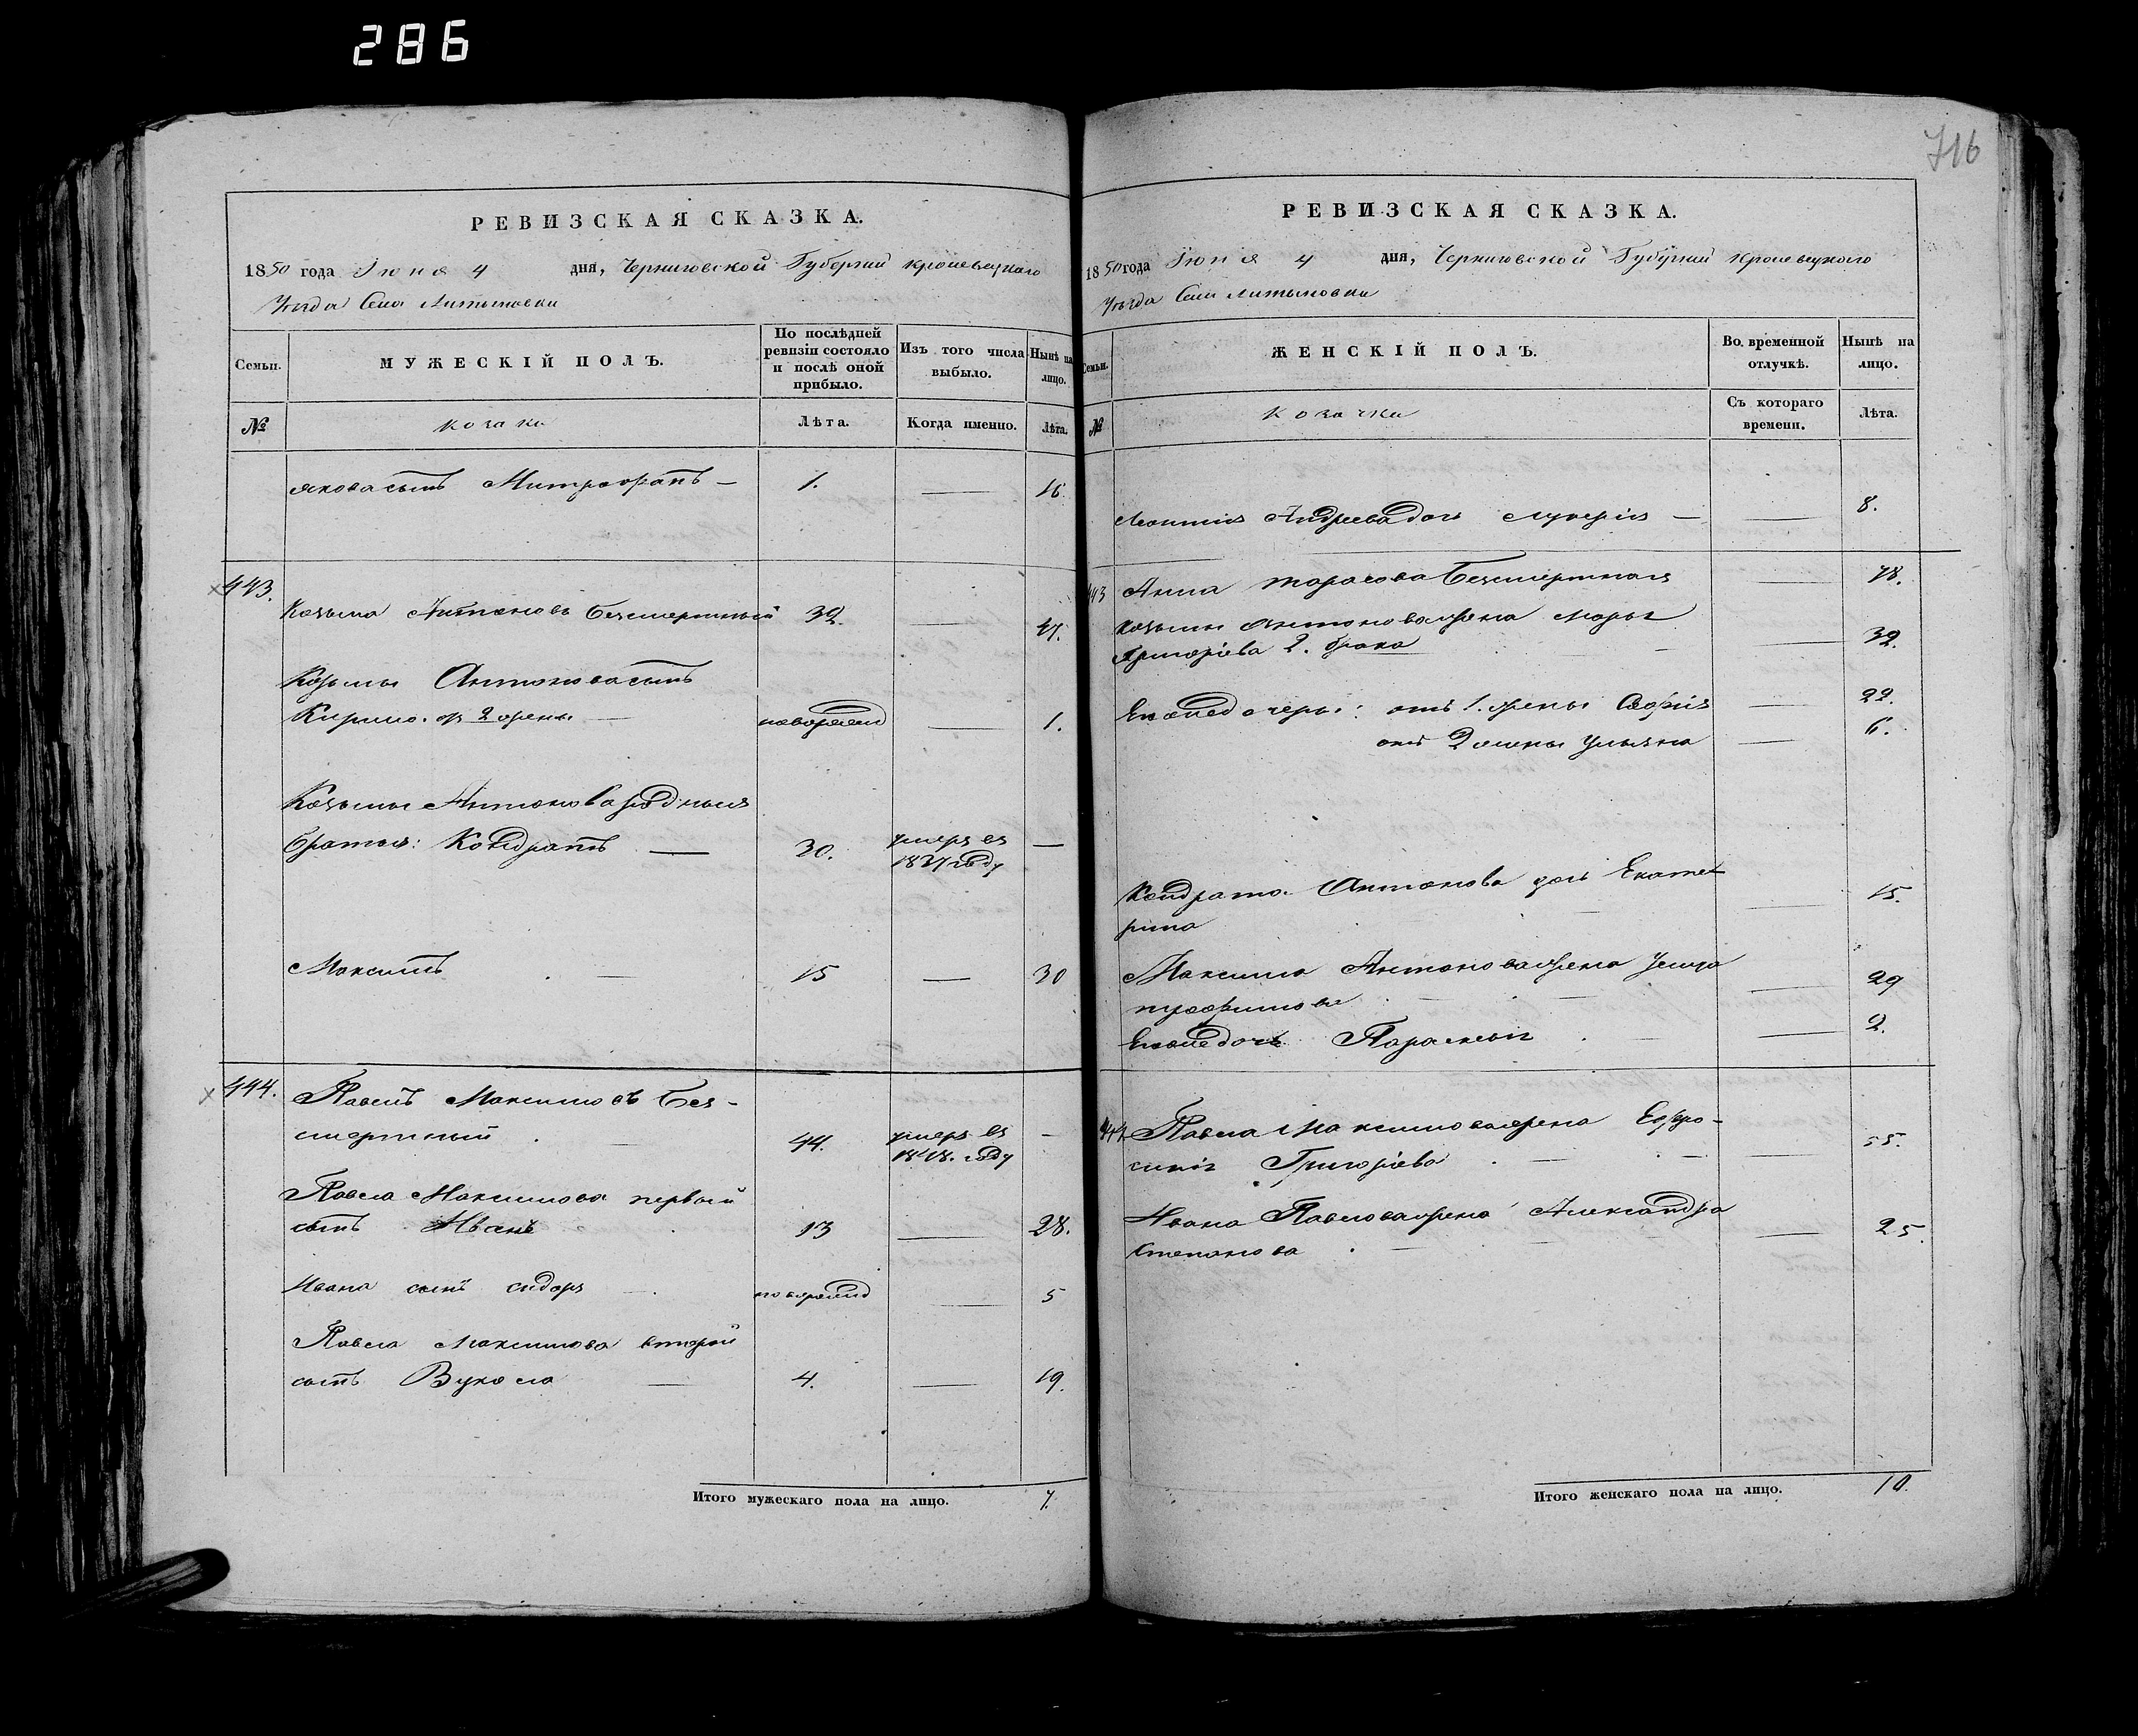 286
716
РЕВИЗСКАЯ СКАЗКА.
1850 года Іюня 4 дня, Черниговской Губерніи Кролевецкаго
Уѣзда Села Литвиновки
Семьи.
МУЖЕСКІЙ ПОЛЪ.
По послѣдней ревизіи состояло и послѣ оной прибыло.
Изъ того числа выбыло.
Нынѣ на лицо.
№
Козаки
Лѣта.
Когда именно.
Лѣта.
Якова сынъ Митрофанъ — 1. — 16
443.
Козьма Антоновъ Безсмертный 32. — 47.
Козьмы Антонова сынъ
Кирило. отъ 2 жены — новорожд — 1.
Козьмы Антонова родныя
братья: Кондратъ — 30. умеръ въ 1837 году —
Максимъ — 15 — 30
444. Павелъ Максимовъ Без-
смертный — 44. умеръ въ 1848. году —
Павла Максимова первый
сынъ Иванъ 13 — 28.
Ивана сынъ Сидоръ — новорожд — 5
Павла Максимова второй
сынъ Вукола — 4. — 19.
Итого мужескаго пола на лицо. 7.
РЕВИЗСКАЯ СКАЗКА.
1850 года Іюня 4 дня, Черниговской Губерніи Кролевецкаго
Уѣзда Села Литвиновки
Семьи.
ЖЕНСКІЙ ПОЛЪ.
Во временной отлучкѣ.
Нынѣ на лицо.
№
Козачки
Съ котораго времени.
Лѣта.
Леонтія Андреева дочь Лукерія — — 8.
443 Анна Тарасова Безсмертная — 78.
Козьмы Антонова жена Марья
Григоріева 2. брака — — 32.
Его же дочери: отъ 1. жены Софія — 22.
отъ 2 жены Ульяна — 6.
Кондрата Антонова дочь Екате-
рина — — 15.
Максима Антонова жена
Трофимова — — 29
Его же дочь Параскевія — — 2.
444 Павла Максимова жена Ефро-
синія Григоріева — — 55.
Ивана Павлова жена Александра
Степанова — — 25.
Итого женскаго пола на лицо. 10.